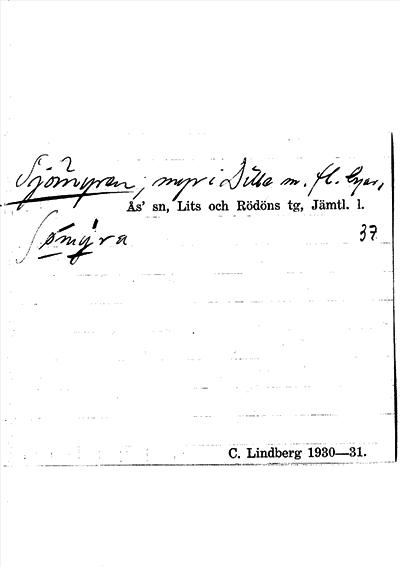 Sjömyren, myr i Dille m. fl. byar,
Ås' sn, Lits och Rödöns tg, Jämtl. l.
ʃømy̍ra 37
C. Lindberg 1930—31.